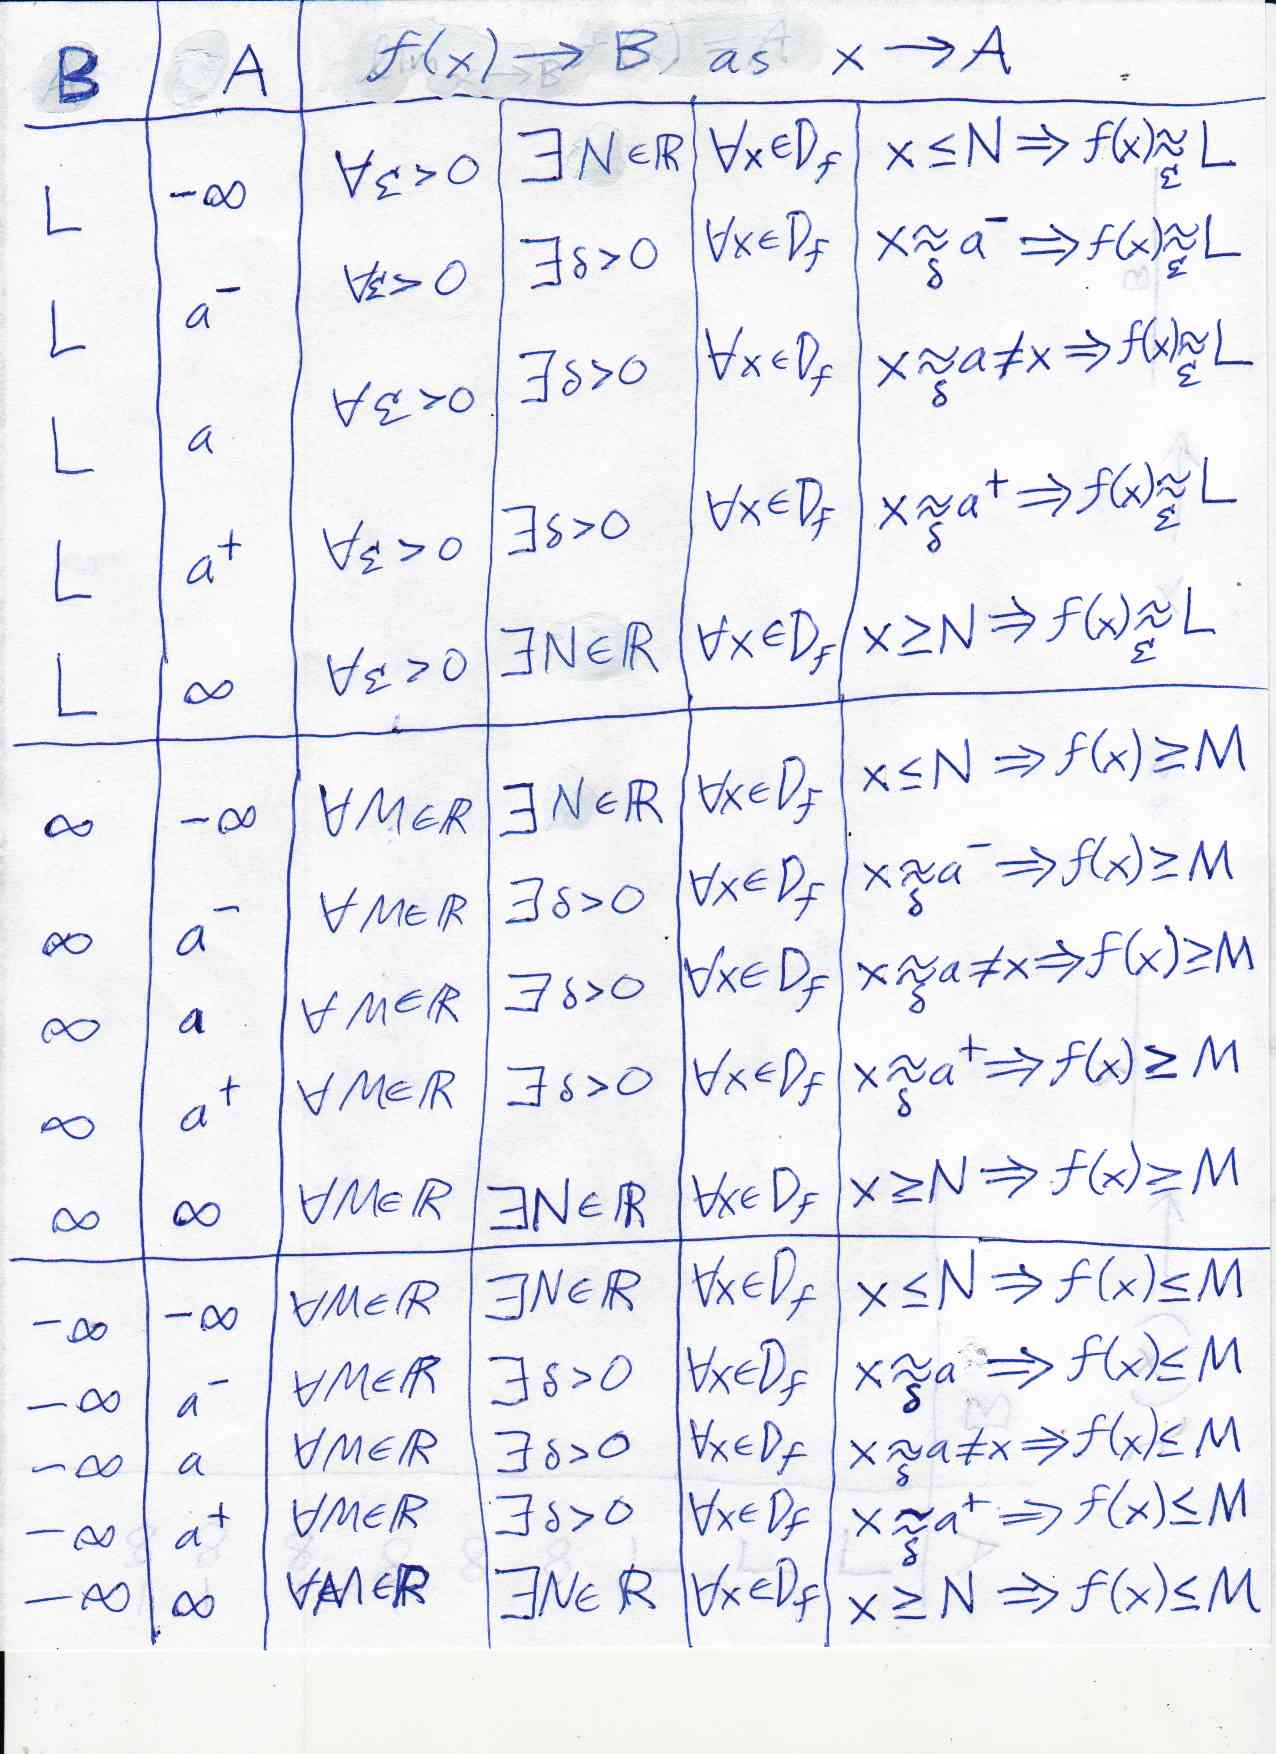 B A f(x) → B as x → A
L -∞ ∀ε>0 ∃N∈ℝ ∀x∈D_f x≤N ⇒ f(x)≈_ε L
L a⁻ ∀ε>0 ∃δ>0 ∀x∈D_f x≈_δ a⁻ ⇒ f(x)≈_ε L
L a ∀ε>0 ∃δ>0 ∀x∈D_f x≈_δ a≠x ⇒ f(x)≈_ε L
L a⁺ ∀ε>0 ∃δ>0 ∀x∈D_f x≈_δ a⁺ ⇒ f(x)≈_ε L
L ∞ ∀ε>0 ∃N∈ℝ ∀x∈D_f x≥N ⇒ f(x)≈_ε L
∞ -∞ ∀M∈ℝ ∃N∈ℝ ∀x∈D_f x≤N ⇒ f(x)≥M
∞ a⁻ ∀M∈ℝ ∃δ>0 ∀x∈D_f x≈_δ a⁻ ⇒ f(x)≥M
∞ a ∀M∈ℝ ∃δ>0 ∀x∈D_f x≈_δ a≠x ⇒ f(x)≥M
∞ a⁺ ∀M∈ℝ ∃δ>0 ∀x∈D_f x≈_δ a⁺ ⇒ f(x)≥M
∞ ∞ ∀M∈ℝ ∃N∈ℝ ∀x∈D_f x≥N ⇒ f(x)≥M
-∞ -∞ ∀M∈ℝ ∃N∈ℝ ∀x∈D_f x≤N ⇒ f(x)≤M
-∞ a⁻ ∀M∈ℝ ∃δ>0 ∀x∈D_f x≈_δ a⁻ ⇒ f(x)≤M
-∞ a ∀M∈ℝ ∃δ>0 ∀x∈D_f x≈_δ a≠x ⇒ f(x)≤M
-∞ a⁺ ∀M∈ℝ ∃δ>0 ∀x∈D_f x≈_δ a⁺ ⇒ f(x)≤M
-∞ ∞ ∀M∈ℝ ∃N∈ℝ ∀x∈D_f x≥N ⇒ f(x)≤M